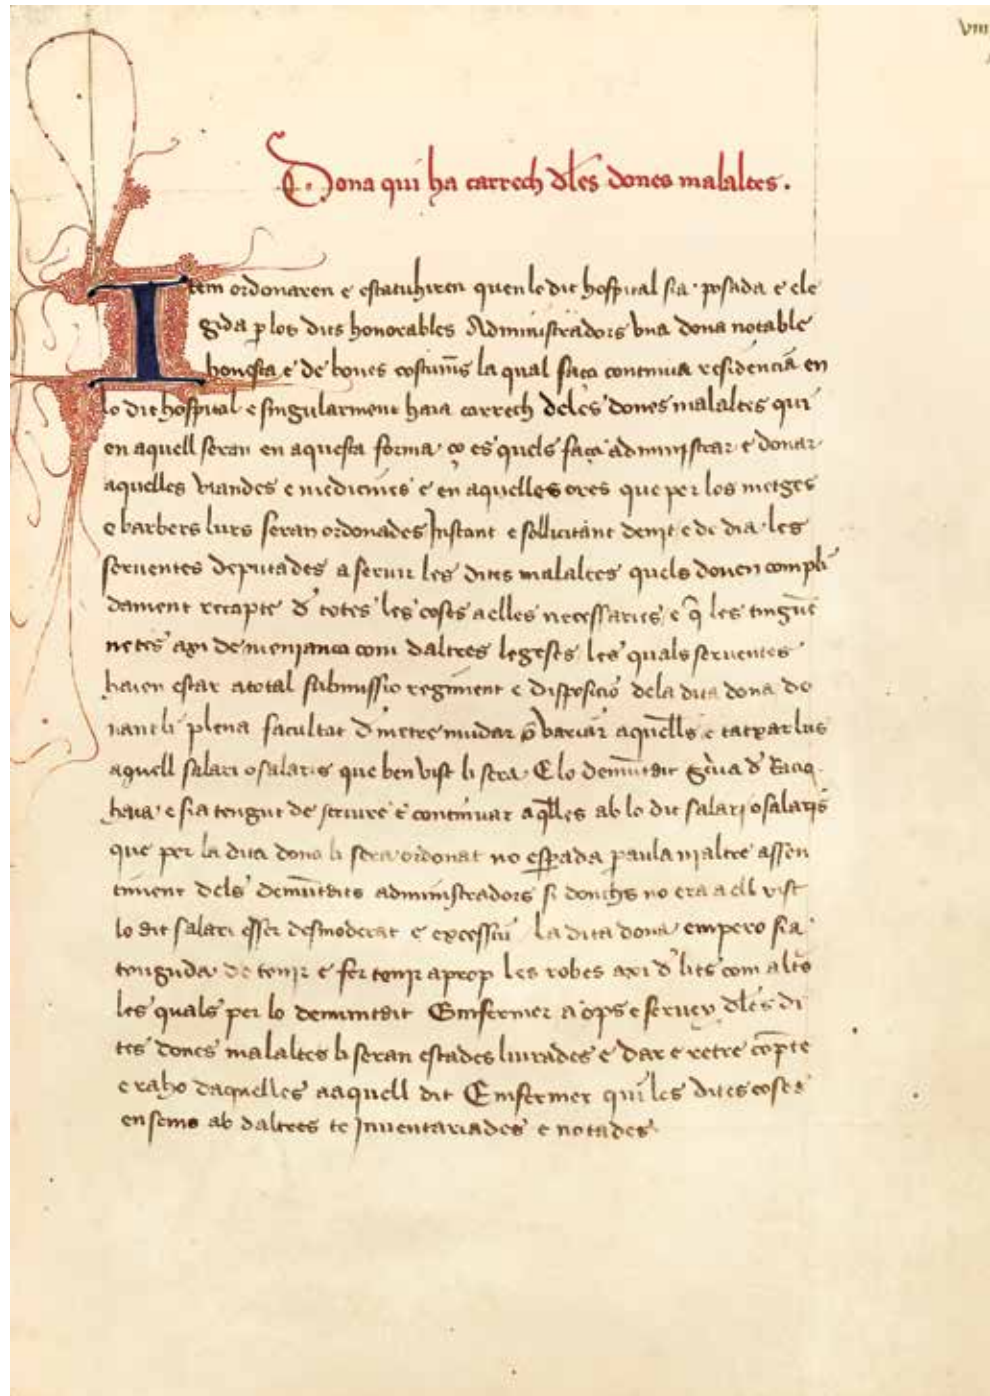 viiii
Dona qui ha carrech dles dones malaltes.
Item ordonaren e estatuhiren quen lo dit hospital sia posada e ele
gida p los dits honorables Administradors vna dona notable
honesta e de bones costums la qual faça continua residencia en
lo dit hospital e singularment haia carrech deles dones malaltes qui
en aquell seran en aquesta forma ço es quels faça administrar e donar
aquelles viandes e medicines e en aquelles ores que per los metges
e barbers lurs seran ordonades Instant e sollicitant denit e de dia les
seruentes deputades a seruir les dites malaltes quels donen compli
dament recapte d totes les coses a elles necessaries e q les tinguē
netes axi de menjança com daltres legeses les quals seruentes
haien estar a total submissio regiment e disposicio dela dita dona do
nantli plena facultat d metre mudar o variar aquells e tatxar lus
aquell salari o salaris que ben vist li sera E lo demūtdit
haia e sia tengut de scriure e continuar aqlles ab lo dit salari o salaris
que per la dita dona li sera ordonat no espada paula ni altre assen
timent dels demūtdits administradors si donchs no era a ell vist
lo dit salari esser desmoderat e excessiu la dita dona empero sia
tenguda de tenir e fer tenir aprop les robes axi d lits com altres
les quals per lo demuntdit Emfermer a ops e seruey dles di
tes dones malaltes li seran estades liurades e dar e retre cōpte
e raho daquelles a aquell dit Emfermer qui les dites coses
ensems ab daltres te Inuentariades e notades